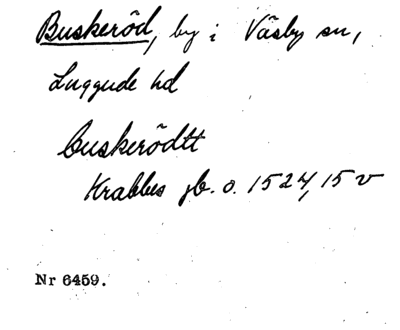 Buskeröd, by i Väsby sn,
Luggude hd
buskerödtt
Krabbes jb. o. 1524, 15 v
Nr 6459.